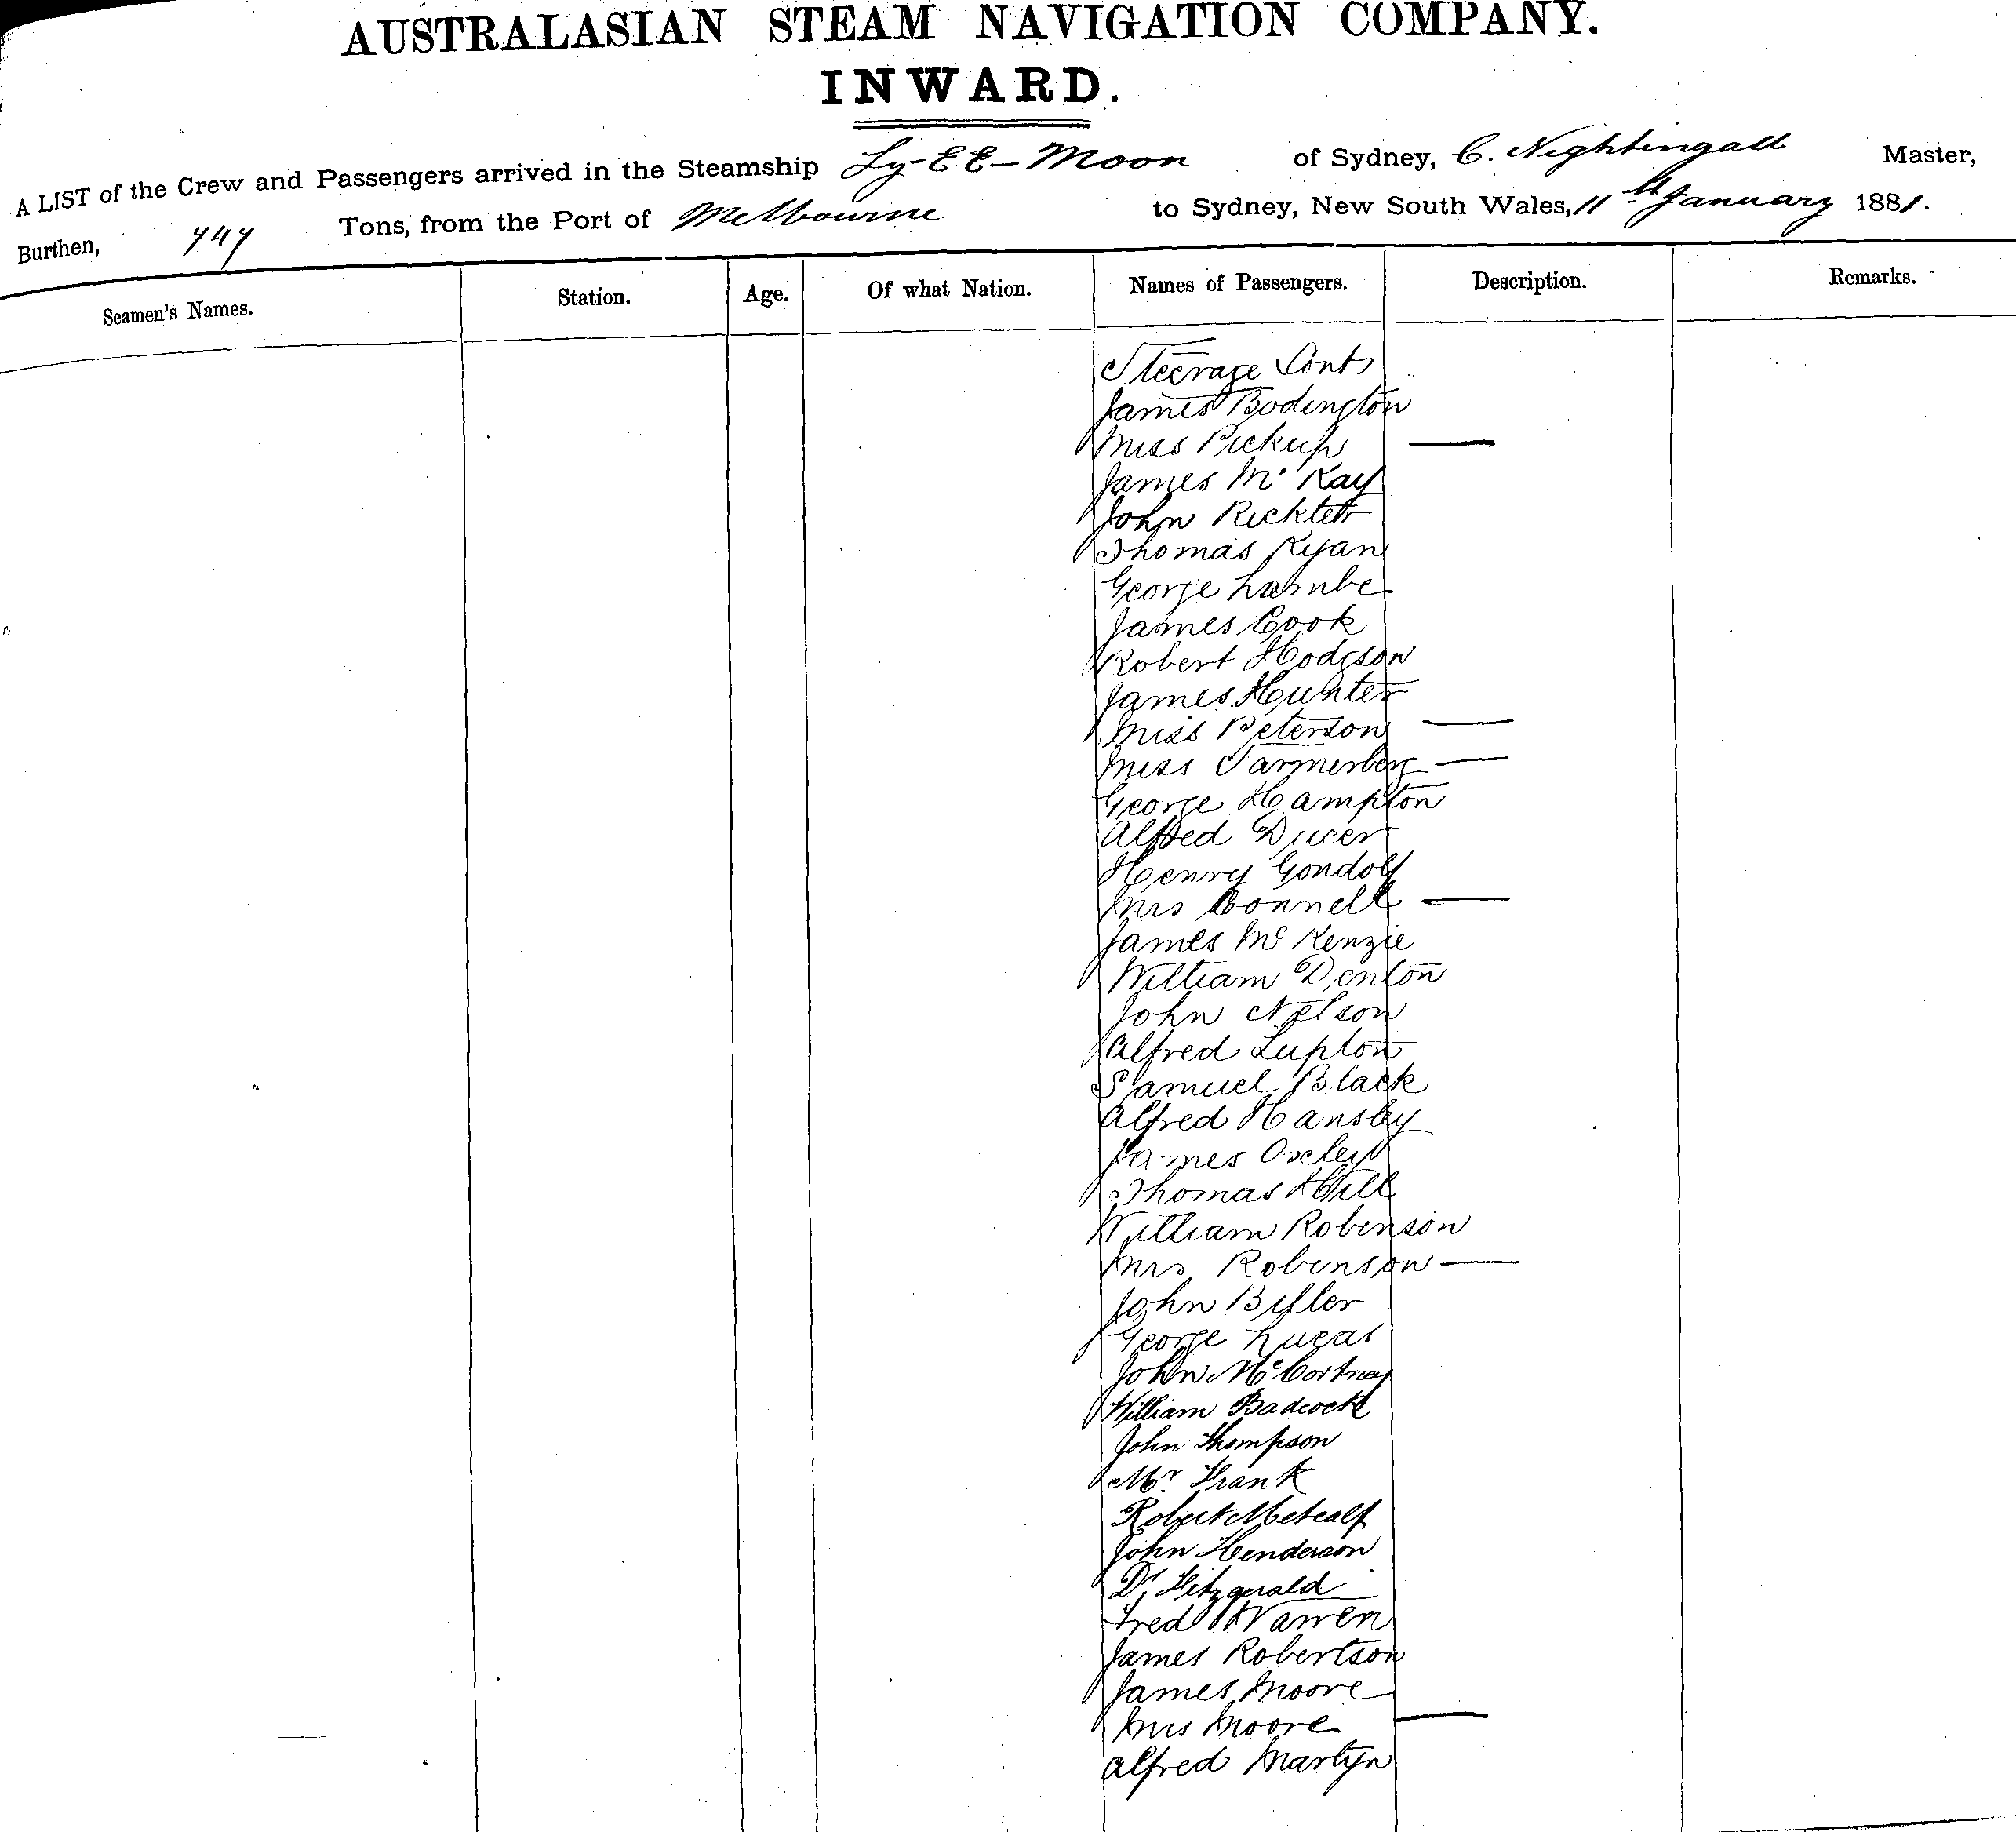 AUSTRALASIAN STEAM NAVIGATION COMPANY.
INWARD.
A LIST of the Crew and Passengers arrived in the Steamship Ly-EE-Moon of Sydney, C. Nightingall Master,
Burthen, 747 Tons, from the Port of Melbourne to Sydney, New South Wales, 11th January 1881.
Seamen's Names. Station. Age. Of what Nation. Names of Passengers. Description. Remarks.
Steerage Cont
James Bodington
Miss Pickup —
James Mc Kay
John Ricktett
Thomas Ryan
George
James Cook
Robert Hodgson
James Hunter
Miss Peterson —
Miss —
George Hampton
Alfred Ducer
Henry Gondolf
Mrs Bonnell —
James Mc Kenzie
William Denton
John Nelson
Alfred Lupton
Samuel Black
Alfred Hansby
James Oxley
Thomas Hill
William Robinson
Mrs Robinson —
John
George Lucas
John McCortney
William Badcock
John Thompson
Mr Frank
Robert Metcalf
John Henderson
Dr Fitzgerald
Fred Warren
James Robertson
James Moore
Mrs Moore —
Alfred Martyn